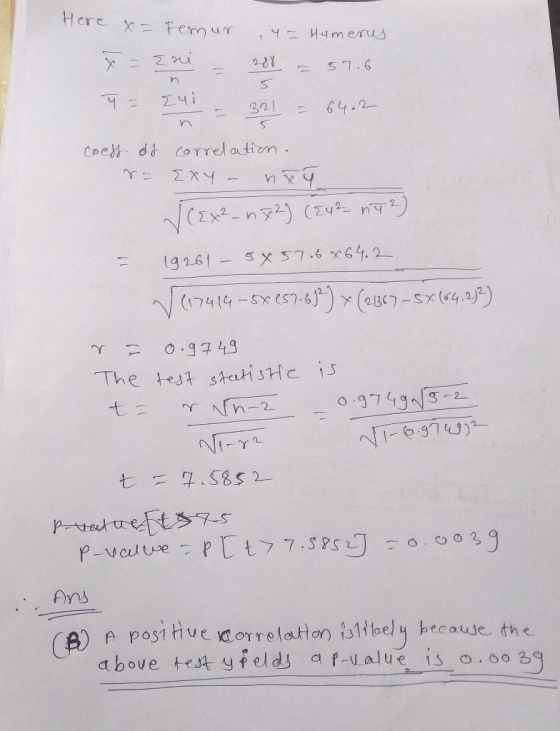 Here x = Femur , y = Humerus
x̅ = Σxi / n = 288 / 5 = 57.6
y̅ = Σyi / n = 321 / 5 = 64.2
coeff. of correlation.
r = Σxy - n x̅ y̅ / √(Σx² - n x̅²) (Σy² - n y̅²)
= 19261 - 5 × 57.6 × 64.2 / √(17414 - 5×(57.6)²) × (21367 - 5×(64.2)²)
r = 0.9749
The test statistic is
t = r √n-2 / √1-r² = 0.9749 √5-2 / √1-(0.9749)²
t = 7.5852
p-value [t > 7.5
p-value = P [ t > 7.5852] = 0.0039
∴ Ans
(B) A positive correlation is likely because the
above test yields a p-value is 0.0039